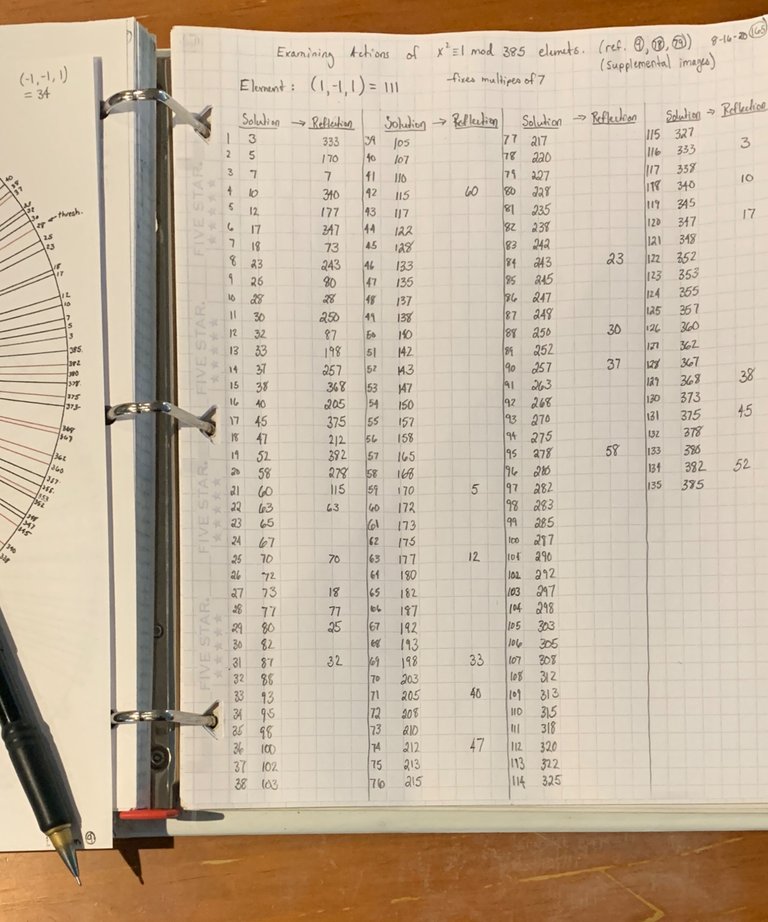 (-1, -1, 1)
= 34
Examining Actions of x² ≡ 1 mod 385 elemets. (ref. 9, 78, 79) 8-16-20 165
(supplemental images)
Element : (1, -1, 1) = 111 -fixes multipes of 7
Solution → Reflection Solution → Reflection Solution → Reflection Solution → Reflection
1 3 333 39 105 77 217 115 327
2 5 170 40 107 78 220 116 333 3
3 7 7 41 110 79 227 117 338
4 10 340 42 115 60 80 228 118 340 10
5 12 177 43 117 81 235 119 345
6 17 347 44 122 82 238 120 347 17
7 18 73 45 128 83 242 121 348
8 23 243 46 133 84 243 23 122 352
9 26 80 47 135 85 245 123 353
10 28 28 48 137 86 247 124 355
11 30 250 49 138 87 248 125 357
12 32 87 50 140 88 250 30 126 360
13 33 198 51 142 89 252 127 362
14 37 257 52 143 90 257 37 128 367
15 38 368 53 147 91 263 129 368 38
16 40 205 54 150 92 268 130 373
17 45 375 55 157 93 270 131 375 45
18 47 212 56 158 94 275 132 378
19 52 382 57 165 95 278 58 133 380
20 58 278 58 168 96 280 134 382 52
21 60 115 59 170 5 97 282 135 385
22 63 63 60 172 98 283
23 65 61 173 99 285
24 67 62 175 100 287
25 70 70 63 177 12 101 290
26 72 64 180 102 292
27 73 18 65 182 103 297
28 77 77 66 187 104 298
29 80 25 67 192 105 303
30 82 68 193 106 305
31 87 32 69 198 33 107 308
32 88 70 203 108 312
33 93 71 205 40 109 313
34 95 72 208 110 315
35 98 73 210 111 318
36 100 74 212 47 112 320
37 102 75 213 113 322
38 103 76 215 114 325
FIVE STAR.
FIVE STAR.
FIVE STAR.
FIVE STAR.
thresh.
28
25
23
18
17
12
10
7
5
3
385
382
380
378
375
373
368
367
362
360
357
355
353
352
348
347
345
340
338
9